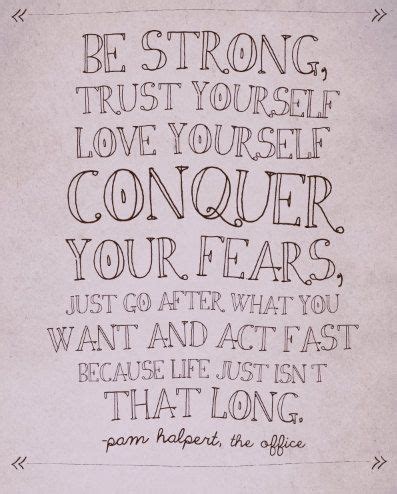 BE STRONG,
TRUST YOURSELF
LOVE YOURSELF
CONQUER
YOUR FEARS,
JUST GO AFTER WHAT YOU
WANT AND ACT FAST
BECAUSE LIFE JUST ISN'T
THAT LONG.
-pam halpert, the office